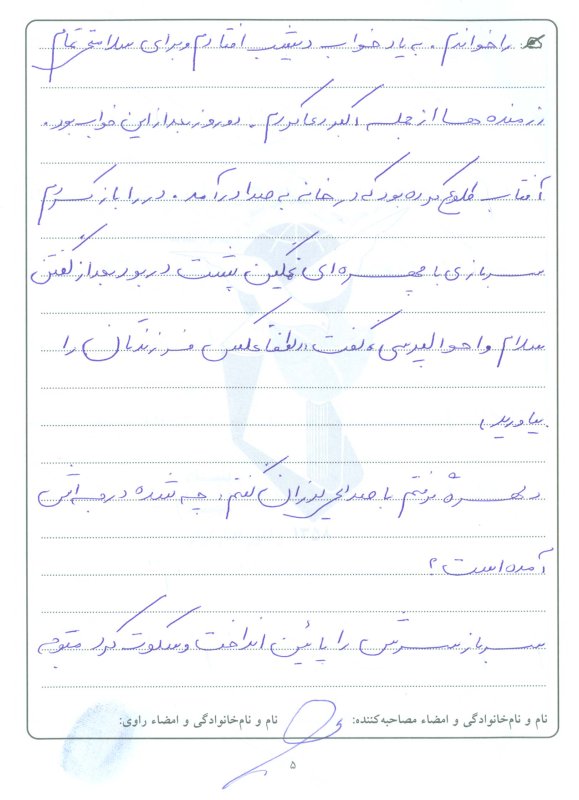 را خواندم. به یاد خواب دیشب افتادم و برای سلامتی تمام
رزمنده ها از جمله اکبر دعا کردم. دو روز بعد از این خواب بود.
آفتاب طلوع کرده بود که در خانه به صدا در آمد. در را باز کردم
سربازی با چهره ای غمگین پشت در بود بعد از گفتن
سلام و احوالپرسی، گفت «لطفاً عکس فرزندتان را
بیاورید»
دلهره گرفتم با صدای لرزان گفتم: چه شده در
آمده است؟
سرباز سرش را پائین انداخت و سکوت کرد متوجه
نام و نام‌خانوادگی و امضاء مصاحبه‌کننده: نام و نام‌خانوادگی و امضاء راوی:
۵